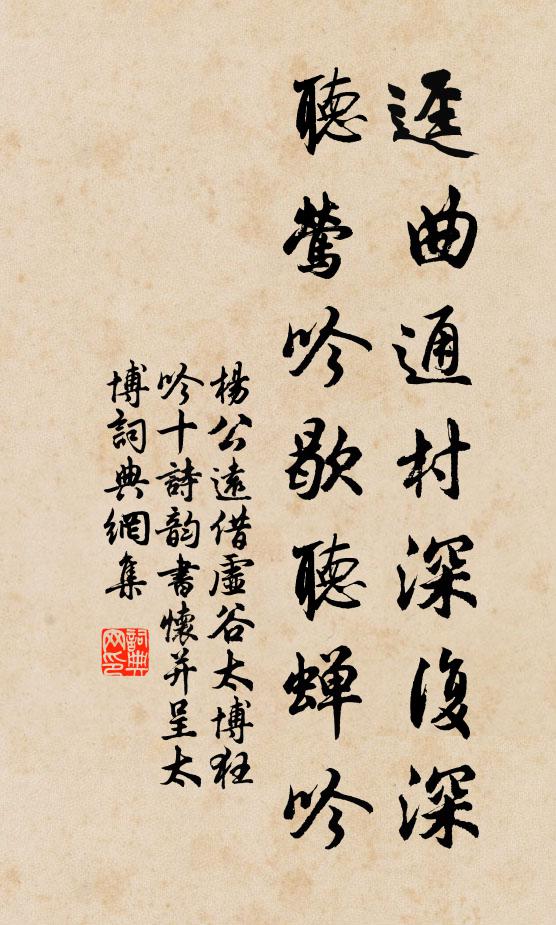 逕曲通村深復深
聽鶯吟歇聽蟬吟
楊公遠借虛谷太博狂
吟十詩韵書懷并呈太
博詞典網集
詞典
网印